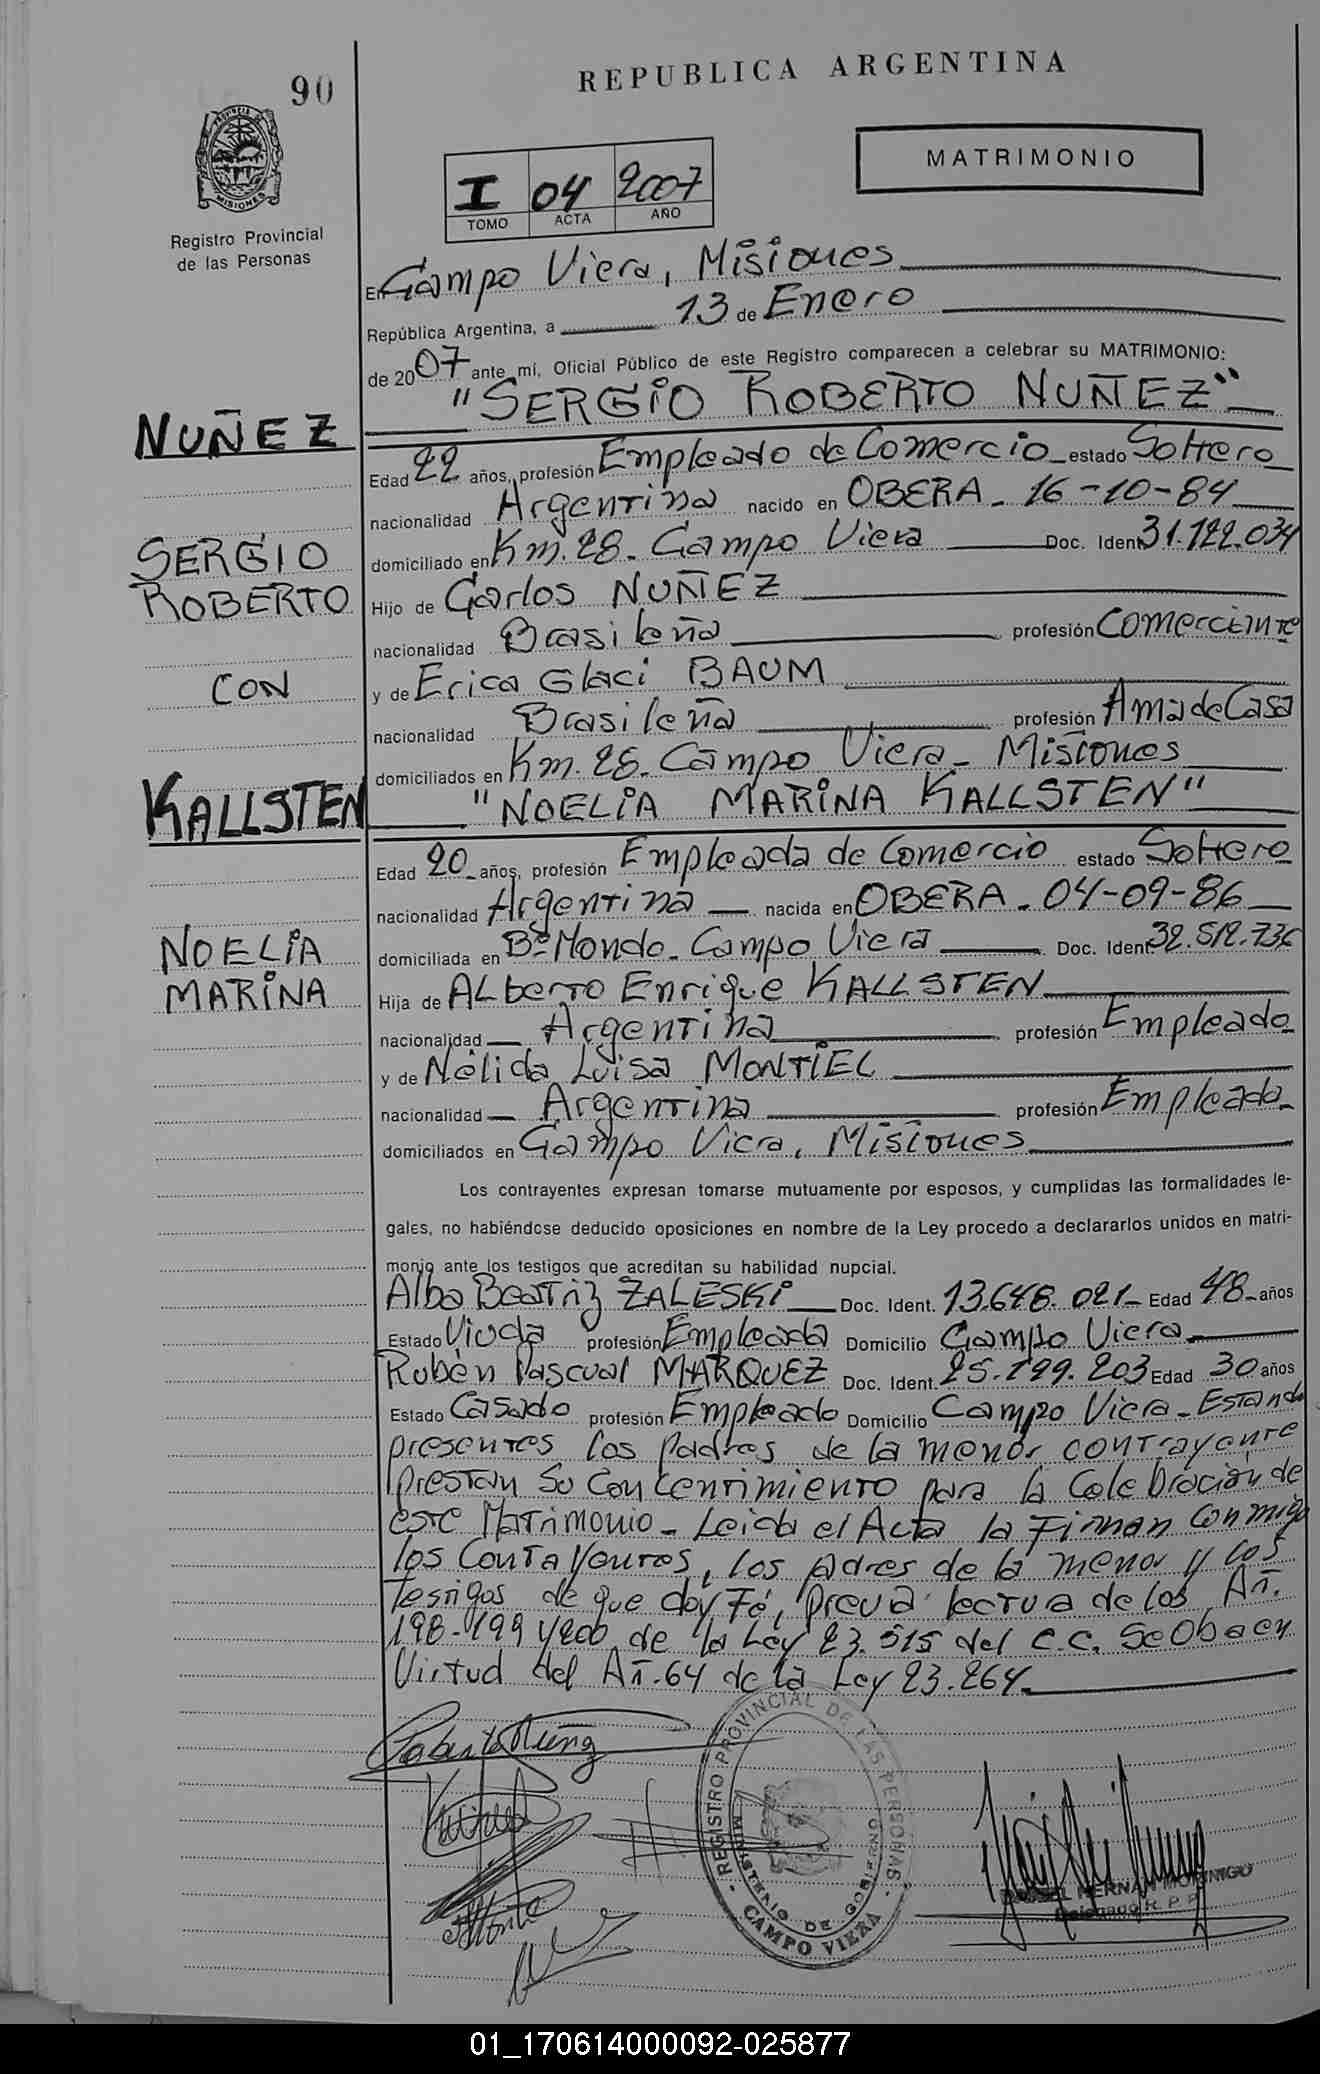 90
REPUBLICA ARGENTINA
MATRIMONIO
PROVINCIA DE MISIONES
Registro Provincial
de las Personas
I 04 2007
TOMO ACTA AÑO
En Campo Viera, Misiones
República Argentina, a 13 de Enero
de 2007 ante mi, Oficial Público de este Registro comparecen a celebrar su MATRIMONIO:
"SERGIO ROBERTO NUÑEZ"
NUÑEZ
Edad 22 años, profesión Empleado de Comercio estado Soltero
nacionalidad Argentina nacido en OBERA - 16-10-84
SERGIO
domiciliado en Km. 28 - Campo Viera Doc. Ident. 31.122.034
ROBERTO
Hijo de Carlos NUÑEZ
nacionalidad Brasileña profesión Comerciante
CON
y de Erica Glaci BAUM
nacionalidad Brasileña profesión Ama de Casa
domiciliados en Km. 28 - Campo Viera - Misiones
KALLSTEN
"NOELIA MARINA KALLSTEN"
Edad 20 años, profesión Empleada de Comercio estado Soltero
nacionalidad Argentina nacida en OBERA - 04-09-86
NOELIA
domiciliada en Bº Mondo - Campo Viera Doc. Ident.
MARINA
Hija de Alberto Enrique KALLSTEN
nacionalidad Argentina profesión Empleado
y de Nélida Luisa MONTIEL
nacionalidad Argentina profesión Empleada
domiciliados en Campo Viera, Misiones
Los contrayentes expresan tomarse mutuamente por esposos, y cumplidas las formalidades le-
gales, no habiéndose deducido oposiciones en nombre de la Ley procedo a declararlos unidos en matri-
monio ante los testigos que acreditan su habilidad nupcial.
Alba Beatriz ZALESKI Doc. Ident. 13.648.021 - Edad 48 años
Estado Viuda profesión Empleada Domicilio Campo Viera
Rubén Pascual MARQUEZ Doc. Ident. 25.199.203 Edad 30 años
Estado Casado profesión Empleado Domicilio Campo Viera - Estando
presentes los padres de la menor contrayente
prestan su concentimiento para la Celebración de
este Matrimonio - Leida el Acta la Firman conmigo
los Contrayentes, los padres de la menor y los
Testigos de que doy Fé, previa lectura de los Art.
198-199 y 200 de la Ley 23.515 del C.C. Se Oba en
Virtud del Art. 64 de la Ley 23.264
Roberto Nuñez
REGISTRO PROVINCIAL DE LAS PERSONAS
MINISTERIO DE GOBIERNO
CAMPO VIERA
HERNAN MORINIGO
Delegado R.P.P.
01_170614000092-025877